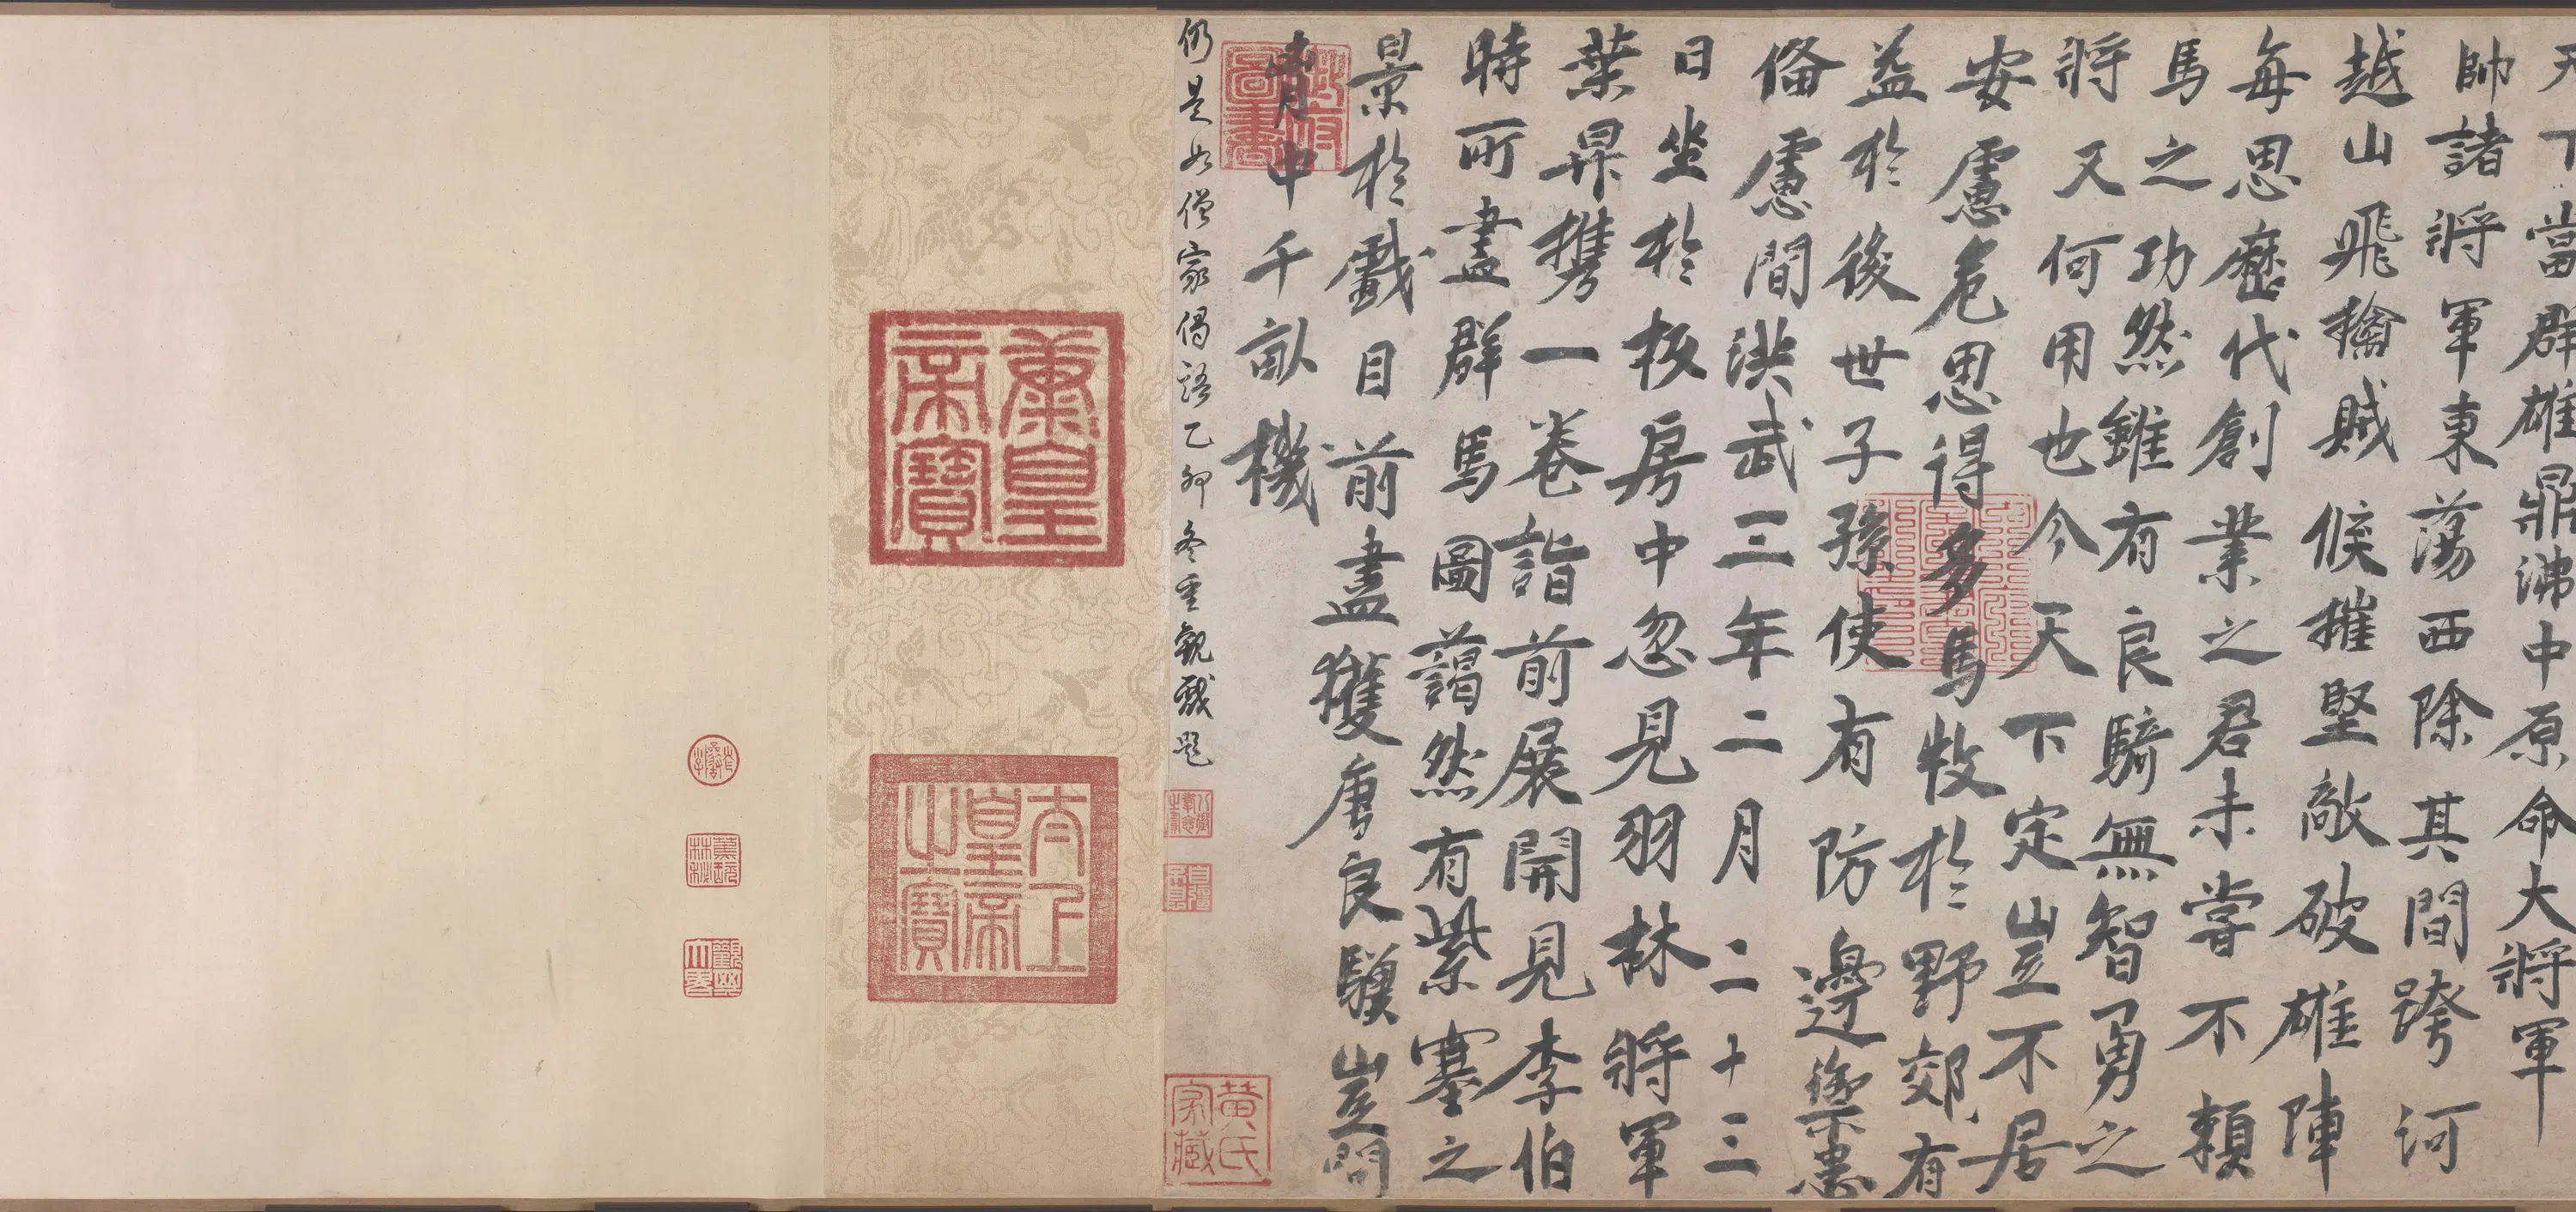 天下當群雄鼎沸中原命大將軍
帥諸將軍東蕩西除其間跨河
越山飛擒賊候摧堅敵破雄陣
每思歷代創業之君未嘗不賴
馬之功然雖有良騎無智勇之
將又何用也今天下定豈不居
安慮危思得多馬牧於野郊有
益於後世子孫使有防邊禦患
俻慮間洪武三年二月二十三
日坐於板房中忽見羽林將軍
葉昇携一卷詣前展開見李伯
時所畫群馬圖藹然有紫塞之
景於戲目前盡獲唐良驥豈問
青中千畝機
御府圖書
仍是如僧家偈語乙卯冬重觀戲題
八徵耄念之寶
自彊不息
黃氏家藏
太上皇帝之寶
觀其大略